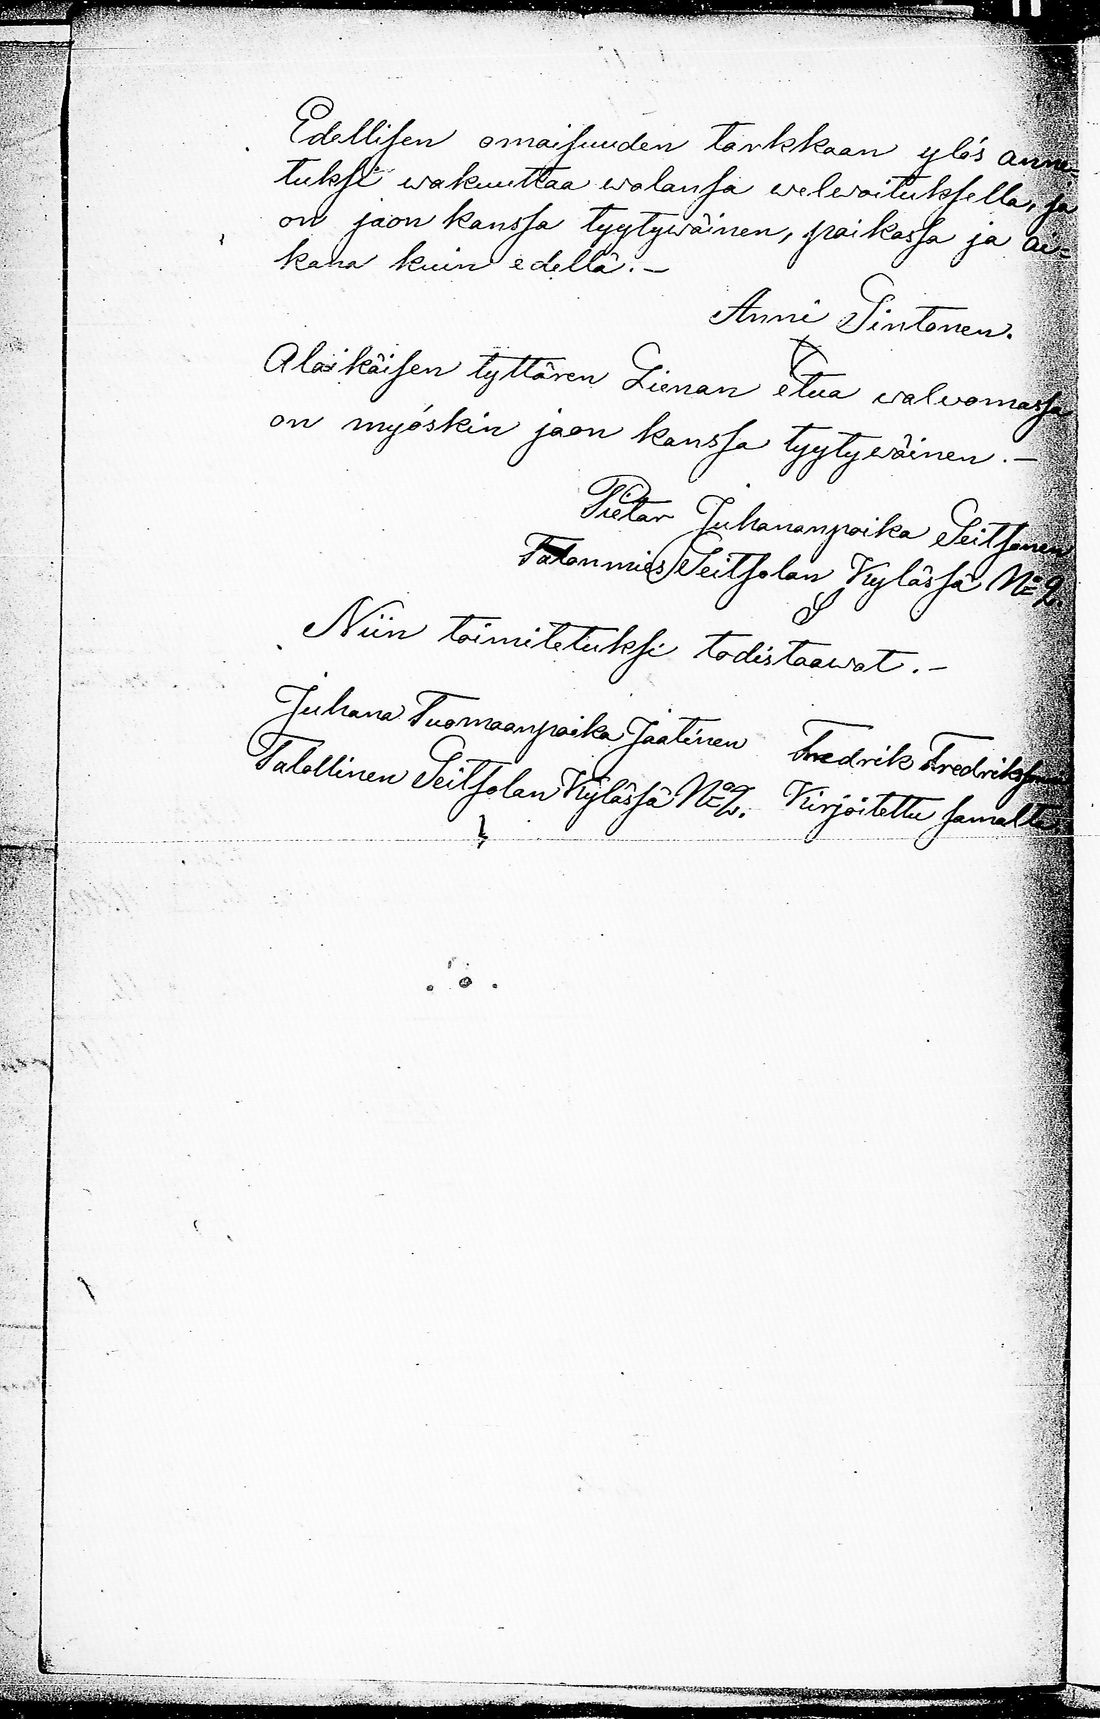 Edellisen omaisuuden tarkkaan ylös anne=
tuksi wakuuttaa walansa welwoituksella, ja
on jaon kanssa tyytywäinen, paikassa ja ai=
kana kuin edellä.—
Anni Sintonen.
Alaikäisen tyttären Lienan etua walwomassa
on myöskin jaon kanssa tyytywäinen.—
Pietar Juhananpoika Seitsonen
Talonmies Seitsolan Kylässä No 2.
Niin toimitetuksi todistaawat.—
Juhana Tuomaanpoika Jaatinen Fredrik Fredriksson
Talollinen Seitsolan Kylässä No 2. Kirjoitettu samalta